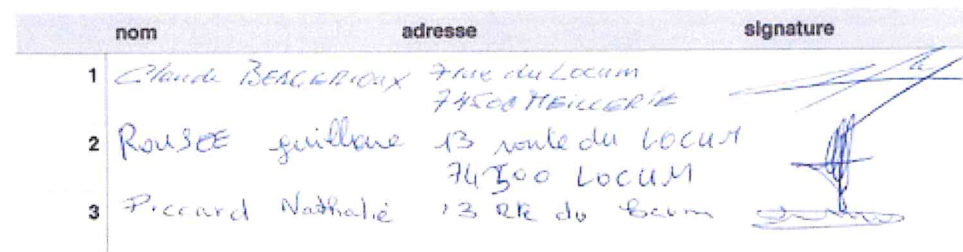 nom adresse signature
1 Claude BERGERIOUX 7 rue du Locum
74500 MEILLERIE
2 ROUSÉE guillaume 13 route du LOCUM
74500 LOCUM
3 Piccard Nathalie 13 Rte du